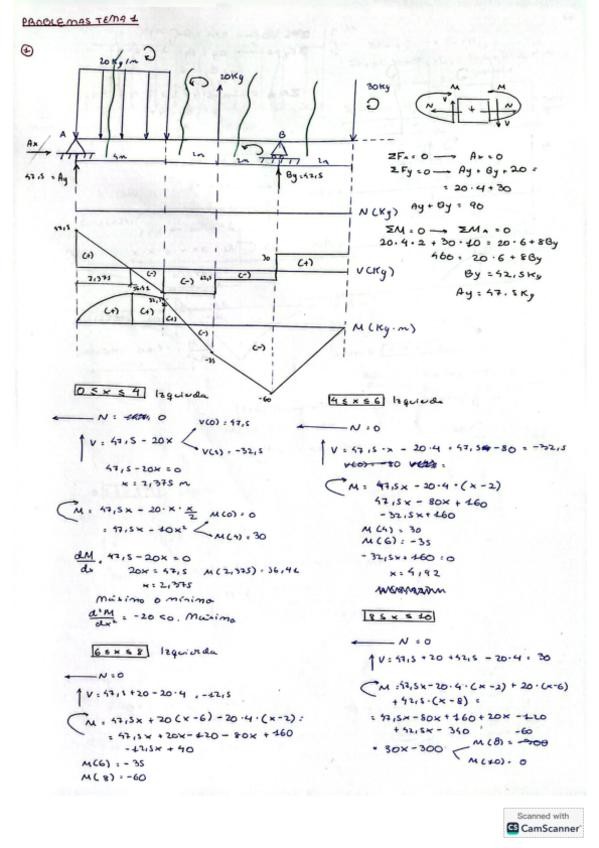 PROBLEMAS TEMA 1
1
20 Kg/m
20Kg
30Kg
M
M
N
V
+
V
N
A
B
Ax
4m
2m
2m
2m
47,5 = Ay
By=42,5
ΣFx = 0 → Ax = 0
ΣFy = 0 → Ay + By + 20 =
= 20·4+30
Ay + By = 90
ΣM = 0 → ΣMA = 0
20·4·2 + 30·10 = 20·6+8By
460 = 20·6+8By
By = 42,5Kg
Ay = 47,5Kg
N(Kg)
47,5
(+)
2,375
(-)
(-)
(-)
30
(+)
V(Kg)
36,42
(+)
(+)
(+)
(-)
-35
(-)
-60
M(Kg·m)
0 ≤ x ≤ 4 Izquierda
N = 0
V = 47,5 - 20x
V(0) = 47,5
V(4) = -32,5
47,5 - 20x = 0
x = 2,375 m
M = 47,5x - 20·x·x/2
= 47,5x - 10x²
M(0) = 0
M(4) = 30
dM/dx = 47,5 - 20x = 0
20x = 47,5
x = 2,375
Máximo o mínimo
d²M/dx² = -20 <0. Máximo
4 ≤ x ≤ 6 Izquierda
N = 0
M = 47,5x - 20·4·(x-2)
47,5x - 80x + 160
-32,5x + 160
M(4) = 30
M(6) = -35
-32,5x + 160 = 0
x = 4,92
6 ≤ x ≤ 8 Izquierda
N = 0
V = 47,5 + 20 - 20·4 = -12,5
M = 47,5x + 20(x-6) - 20·4·(x-2) =
= 47,5x + 20x - 120 - 80x + 160
-12,5x + 40
M(6) = -35
M(8) = -60
8 ≤ x ≤ 10
N = 0
V = 47,5 + 20 + 42,5 - 20·4 = 30
M = 47,5x - 20·4·(x-2) + 20·(x-6)
+ 42,5·(x-8) =
= 47,5x - 80x + 160 + 20x - 120
+ 42,5x - 340
= 30x - 300
M(8) = -60
M(10) = 0
Scanned with
CS CamScanner